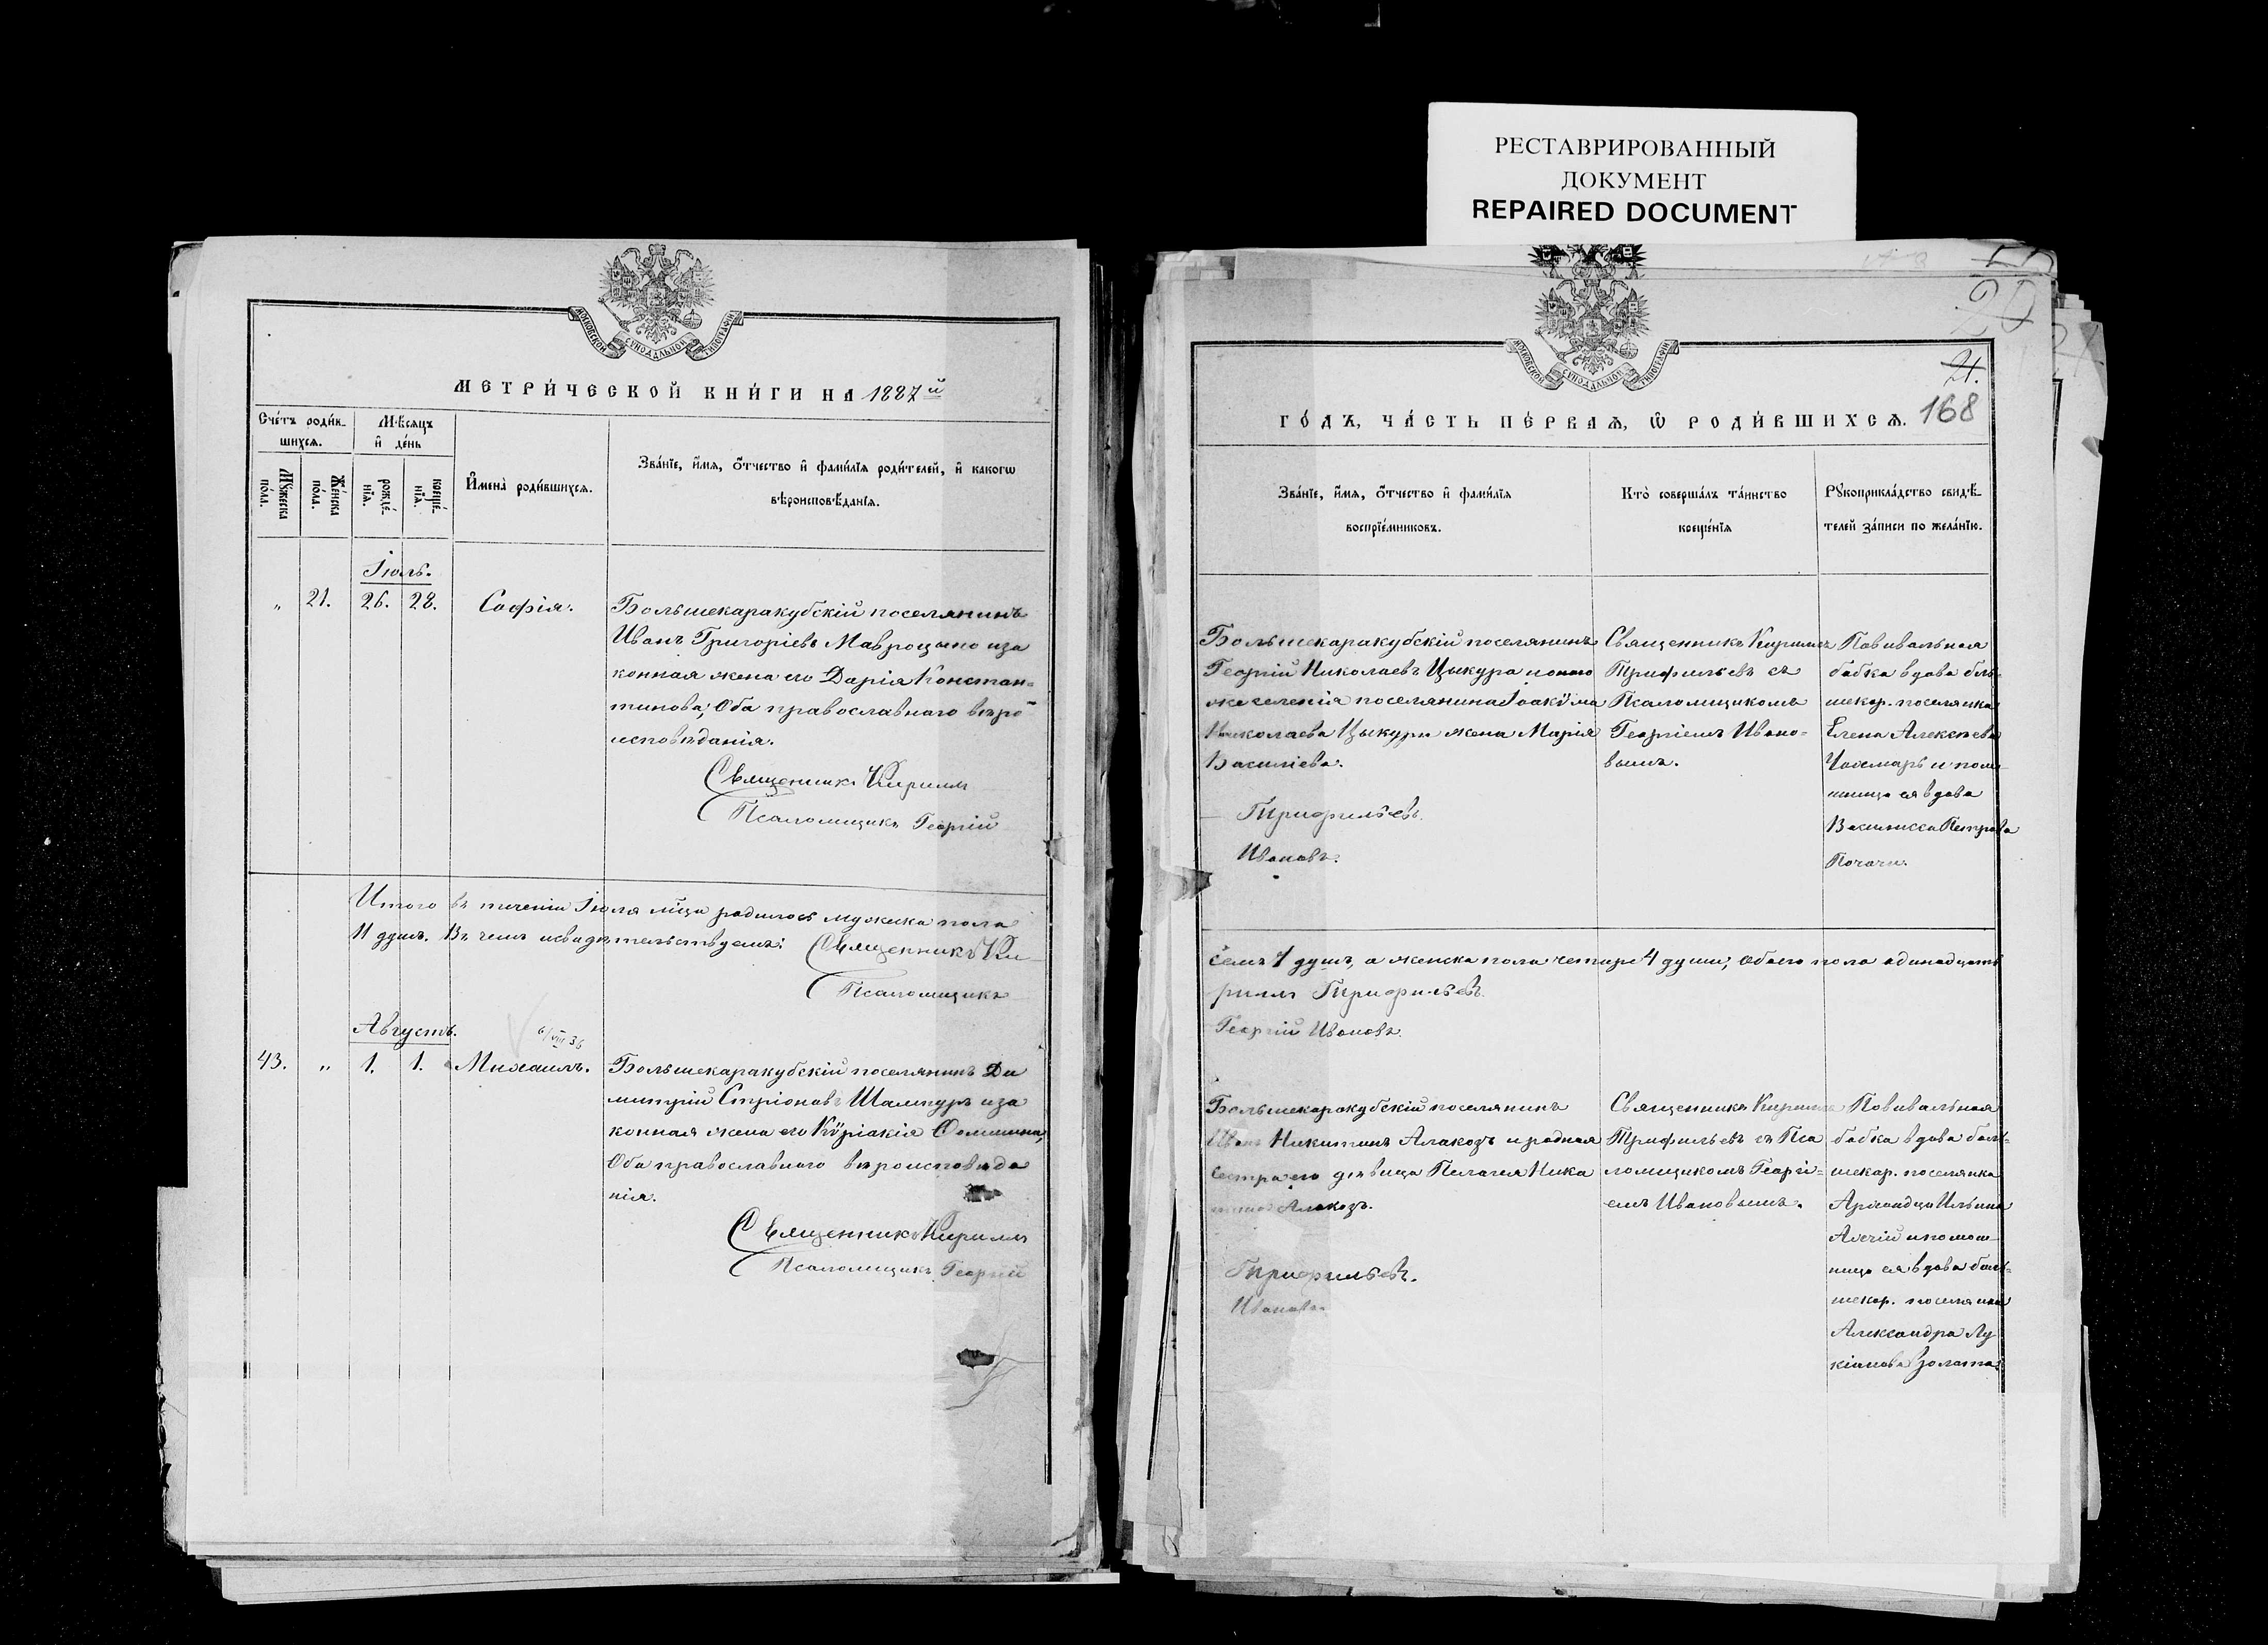 РЕСТАВРИРОВАННЫЙ
ДОКУМЕНТ
REPAIRED DOCUMENT
МОСКОВСКОЙ СѴНОДАЛЬНОЙ ТИПОГРАФІИ
МЕТРИ́ЧЕСКОЙ КНИ́ГИ НА 1887й
Сче́тъ роди́в-
шихся.
Мѣсяцъ
и҆ де́нь
Мꙋ́жеска
по́ла.
Же́нска
по́ла.
рожде́-
нїѧ.
креще́-
нїѧ.
И҆мена̀ роди́вшихсѧ.
Зва́нїе, и҆́мѧ, ѻ҆́тчество и҆ фамі́лїѧ роди́телей, и҆ какогѡ
вѣроисповѣ́данїѧ.
Іюль.
„ 21. 26. 28. Софія.
Большекаракубскій поселянинъ
Иванъ Григоріевъ Мавроцыно и за
конная жена его Дарія Констан=
тинова; Оба православнаго вѣро
исповѣданія.
Священникъ Кириллъ
Псаломщикъ Георгій
Итого въ теченіи Іюля м̃ца родилось мужска пола
11 душъ. Въ чемъ и свидѣтельствуемъ: Священникъ Ки-
Псаломщикъ
Августъ.
6/VIII 36
43. „ 1. 1. Михаилъ.
Большекаракубскій поселянинъ Ди
митрій Стріоновъ Шампуръ и за
конная жена его Кѵріакія
Оба православнаго вѣроисповѣда
нія.
Священникъ Кириллъ
Псаломщикъ Георгій
МОСКОВСКОЙ СѴНОДАЛЬНОЙ ТИПОГРАФІИ
20
21.
168
ГО́ДЪ, ЧА́СТЬ ПЕ́РВАѦ, Ѡ҆ РОДИ́ВШИХСѦ.
Зва́нїе, и҆́мѧ, ѻ҆́тчество и҆ фамі́лїѧ
воспрїе́мниковъ.
Кто̀ соверша́лъ та́инство
креще́нїѧ
Рꙋкоприкла́дство свидѣ́-
телей за́писи по жела́нїю.
Большекаракубскій поселянинъ
Георгій Николаевъ Цыкура и оного
же селенія поселянина Іоакѵма
Николаева Цыкуры жена Марія
Василіева.
Трифильевъ.
Ивановъ.
Священникъ Кириллъ
Трифильевъ съ
Псаломщикомъ
Георгіемъ Ивано=
вымъ.
Повивальная
бабка вдова боль-
шекар. поселянка
Елена Алексѣева
Чоемаръ и пом-
щница ея вдова
Василисса Петрова
Почочи.
семь 7 душъ, а женска пола четыре 4 души; Обоего пола одинадцать
риллъ Трифильевъ.
Георгій Ивановъ.
Большекаракубскій поселянинъ
Иванъ Никитинъ Алакозъ и родная
сестра его дѣвица Пелагея Ники
тина Алакозъ.
Трифильевъ.
Ивановъ.
Священникъ Кириллъ
Трифильевъ съ Пса
ломщикомъ Георгі=
емъ Ивановымъ.
Повивальная
бабка вдова боль-
шекар. поселянка
Ильина
и помощ-
ница ея вдова боль-
шекар. поселянка
Александра Лу
кіанова Золота.